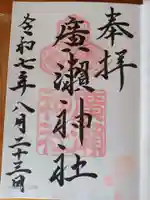 奉拝
廣瀬神社
令和七年八月二十三日